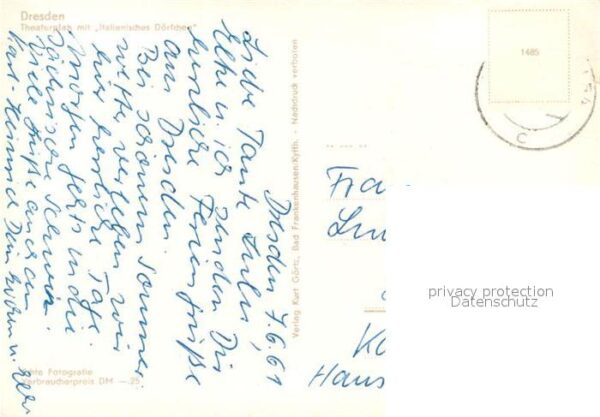 Dresden
Theaterplatz mit „Italienisches Dörfchen"
Dresden 7.6.61
Liebe Tante
Elke u. ich senden Dir
herzliche Feriengrüße
aus Dresden.
Bei schönem Sommer-
wetter verleben wir
hier herrliche Tage.
Morgen geht's in die
Sächsische Schweiz.
Viele Grüße auch an
Karl-Heinz u.
Echte Fotografie
Verbraucherpreis DM —.25
Verlag Kurt Görtz, Bad Frankenhausen/Kyffh. · Nachdruck verboten
1485
Fra
Haus
privacy protection
Datenschutz